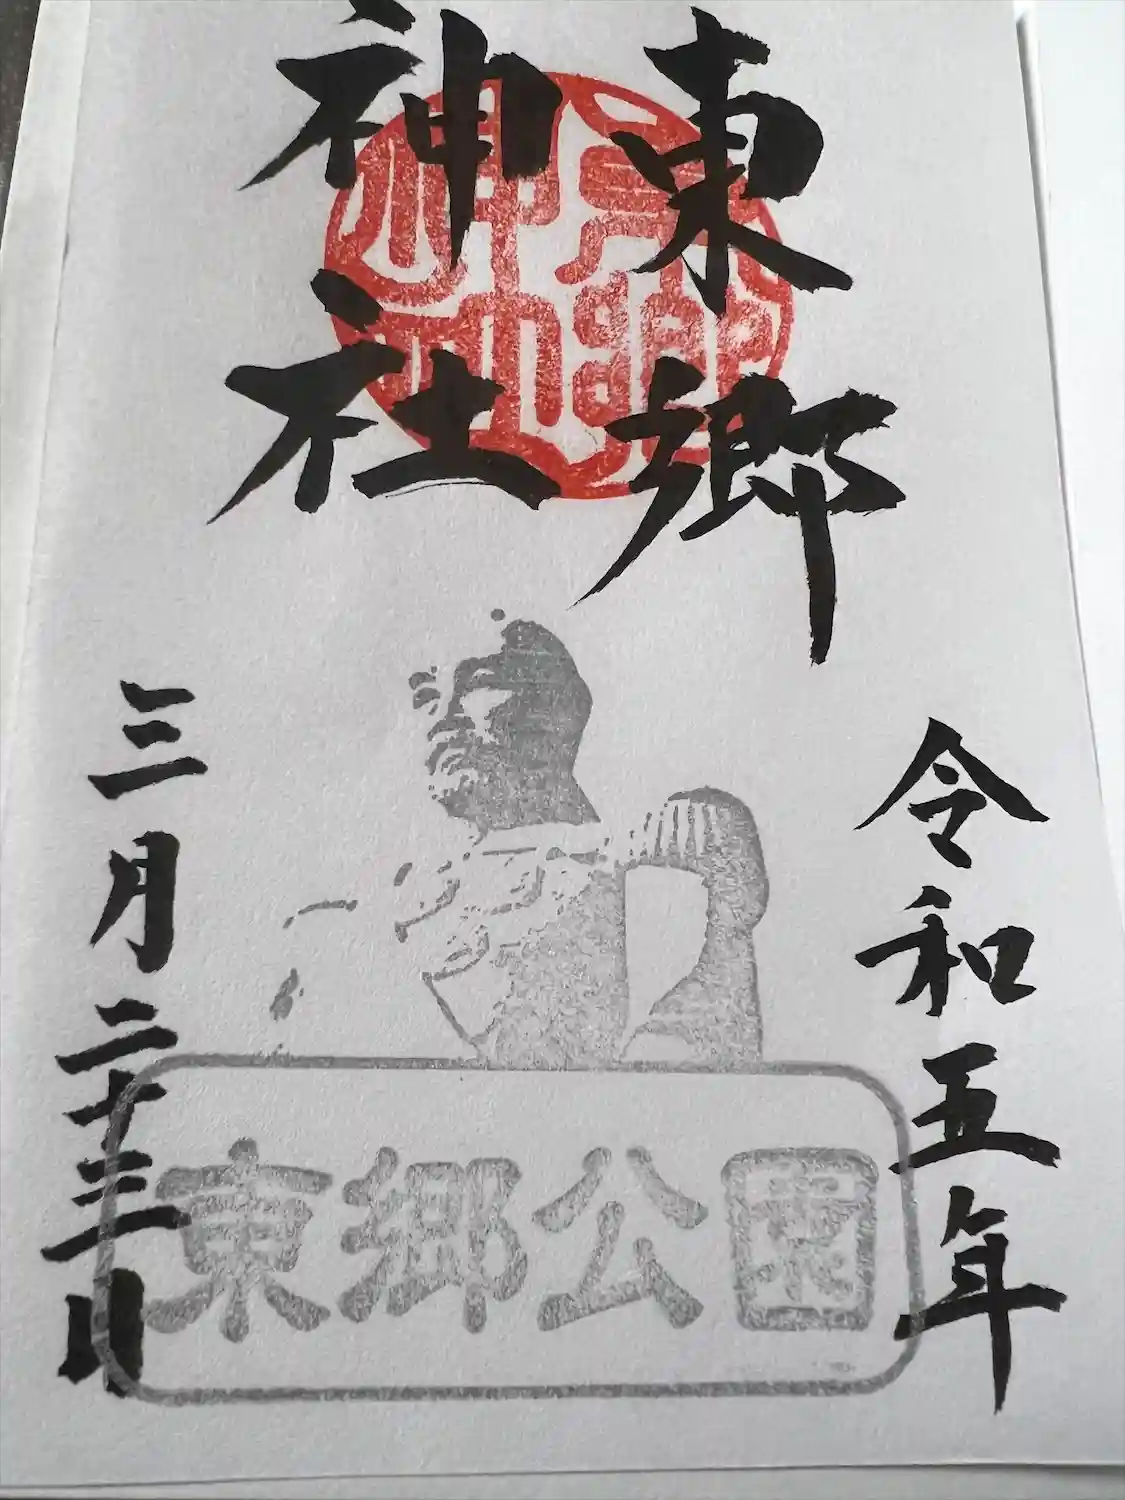 東郷
神社
令和五年
三月二十三日
東郷公園